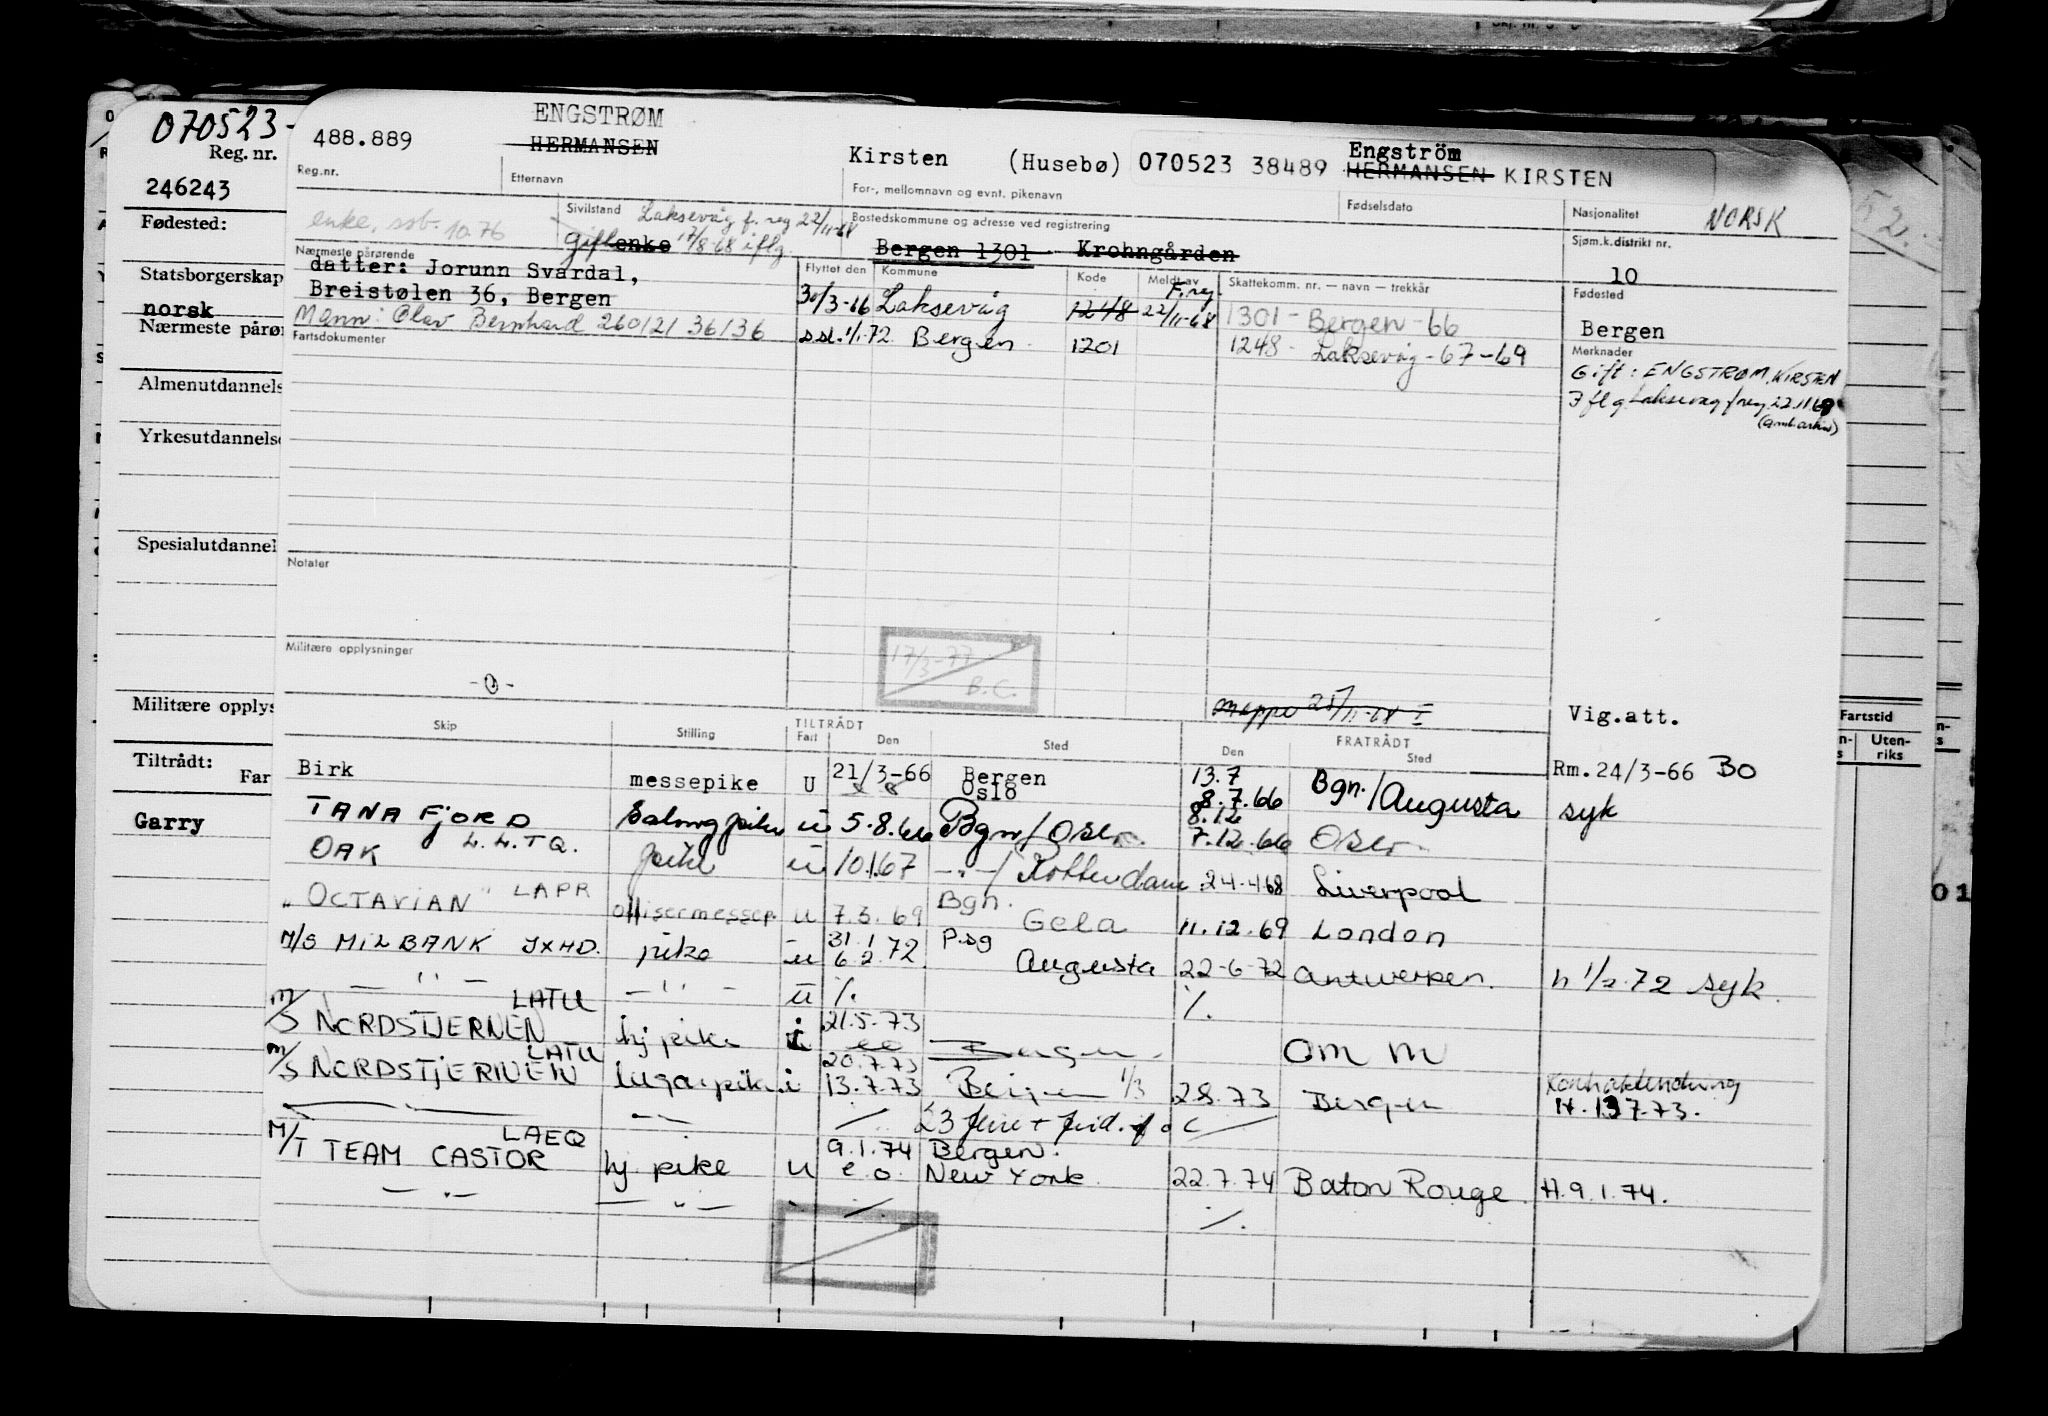 070523-
Reg. nr.
246243
Fødested:
Statsborgerskap
norsk
Nærmeste pårør
Almenutdannels
Yrkesutdannelse
Spesialutdannel
Militære opplys
Tiltrådt:
Far
Garry
488.889
ENGSTRØM
HERMANSEN
Kirsten (Husebø)
070523 38489
Engström
HERMANSEN KIRSTEN
Reg.nr.
Etternavn
For-, mellomnavn og evnt. pikenavn
Fødselsdato
Nasjonalitet
NORSK
enke, 10.76
Sivilstand
Laksevåg f. reg 22/11-68
Gift enke 17/8-68 iflg.
Bostedskommune og adresse ved registrering
Bergen 1301 Krohngården
Sjøm.k.distrikt nr.
10
Nærmeste pårørende
datter: Jorunn Svardal,
Breistølen 36, Bergen
Mann: Olav Bernhard 260121 36136
Flyttet den Kommune Kode Meldt av Skattekomm. nr. — navn — trekkår
F.reg.
30/3-16 Laksevåg 1248 22/11-68 1301 - Bergen - 66
s.st. 1/1-72 Bergen 1201 1248 - Laksevåg - 67-69
Fødested
Bergen
Merknader
Gift: ENGSTRØM, KIRSTEN
Iflg. Laksevåg f.reg 22.11.68
Fartsdokumenter
Notater
Militære opplysninger
-0-
17/3-77
B.C.
Mappe 25/11-68 I
Vig.att.
Skip Stilling TILTRÅDT Fart Den Sted FRATRÅDT Den Sted
Birk messepike U 21/3-66 Bergen Oslo 13.7 8.7.66 Bgn./Augusta Rm.24/3-66 BO
TANAFJORD Salongpike u 5.8.66 Bgn/Oslo 8.12 7.12.66 Oslo syk
OAK L.L.T.Q. pike u 10.1.67 -"-/ Rotterdam 24-4.68 Liverpool
"OCTAVIAN" LAPR offisermessep. u 7.3.69 Bgn. Gela 11.12.69 London
M/S MILBANK JXHD. pike u 31.1 6.2.72 Augusta 22-6-72 Antwerpen. h 1/2.72 syk.
— " — — " — u ٪.
M/S NORDSTJERNEN LATU hj pike i 21.5.73 Bergen OM M
M/S NORDSTJERNEN LATU lugarpike i 20.7.73 13.7.73 Bergen 1/3 28.73 Bergen Kontraktendring H.137.73.
M/T TEAM CASTOR LAEQ hj. pike u 9.1.74 e.o. Bergen. New York 22.7.74 Baton Rouge. H.9.1.74.
— " — — " —
Fartstid
Uten-
riks
01
52.